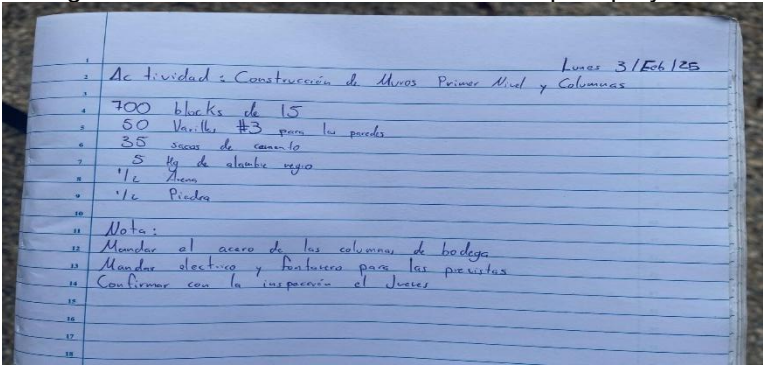 Lunes 3/Feb/25
Actividad: Construcción de Muros Primer Nivel y Columnas
700 blocks de 15
50 Varillas #3 para las paredes
35 sacos de cemento
5 Kg de alambre negro
1/c Arena
1/c Piedra
Nota:
Mandar el acero de las columnas de bodega
Mandar electrico y fontanero para las previstas
Confirmar con la inspección el Jueves